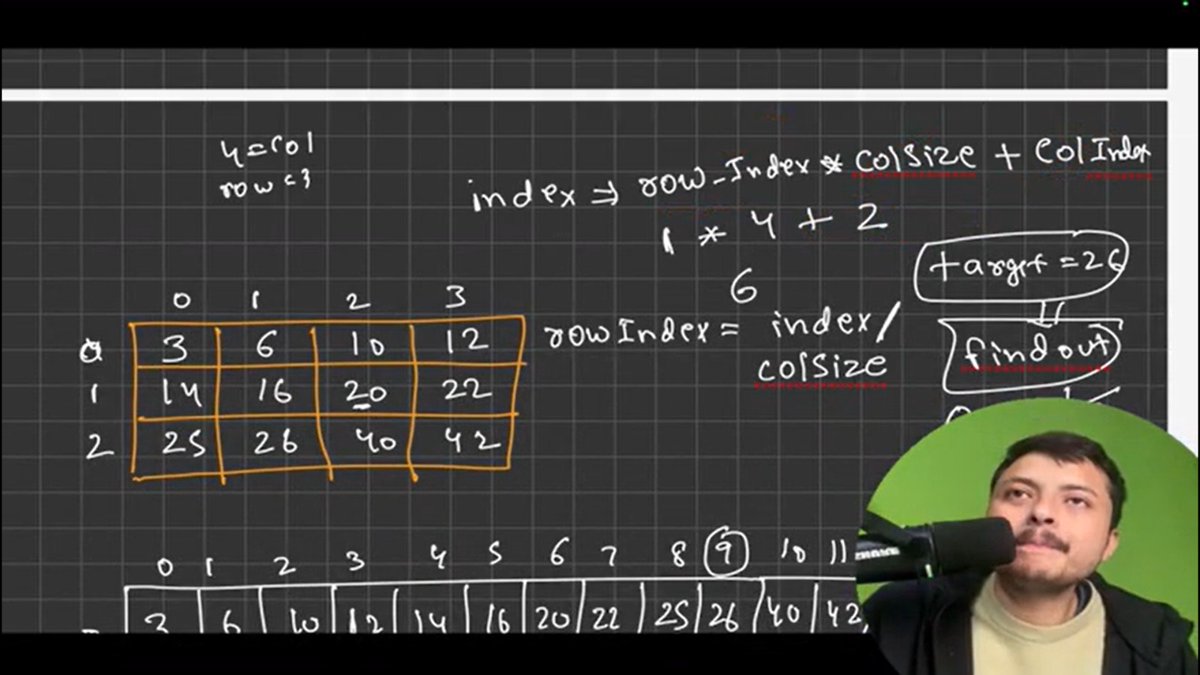 4=col
row=3
index ⇒ row-Index * ColSize + ColIndex
1 * 4 + 2
6
target = 26
find out
rowIndex = index/
colSize
0 1 2 3
0 3 6 10 12
1 14 16 20 22
2 25 26 40 42
0 1 2 3 4 5 6 7 8 9 10 11
3 6 10 12 14 16 20 22 25 26 40 42